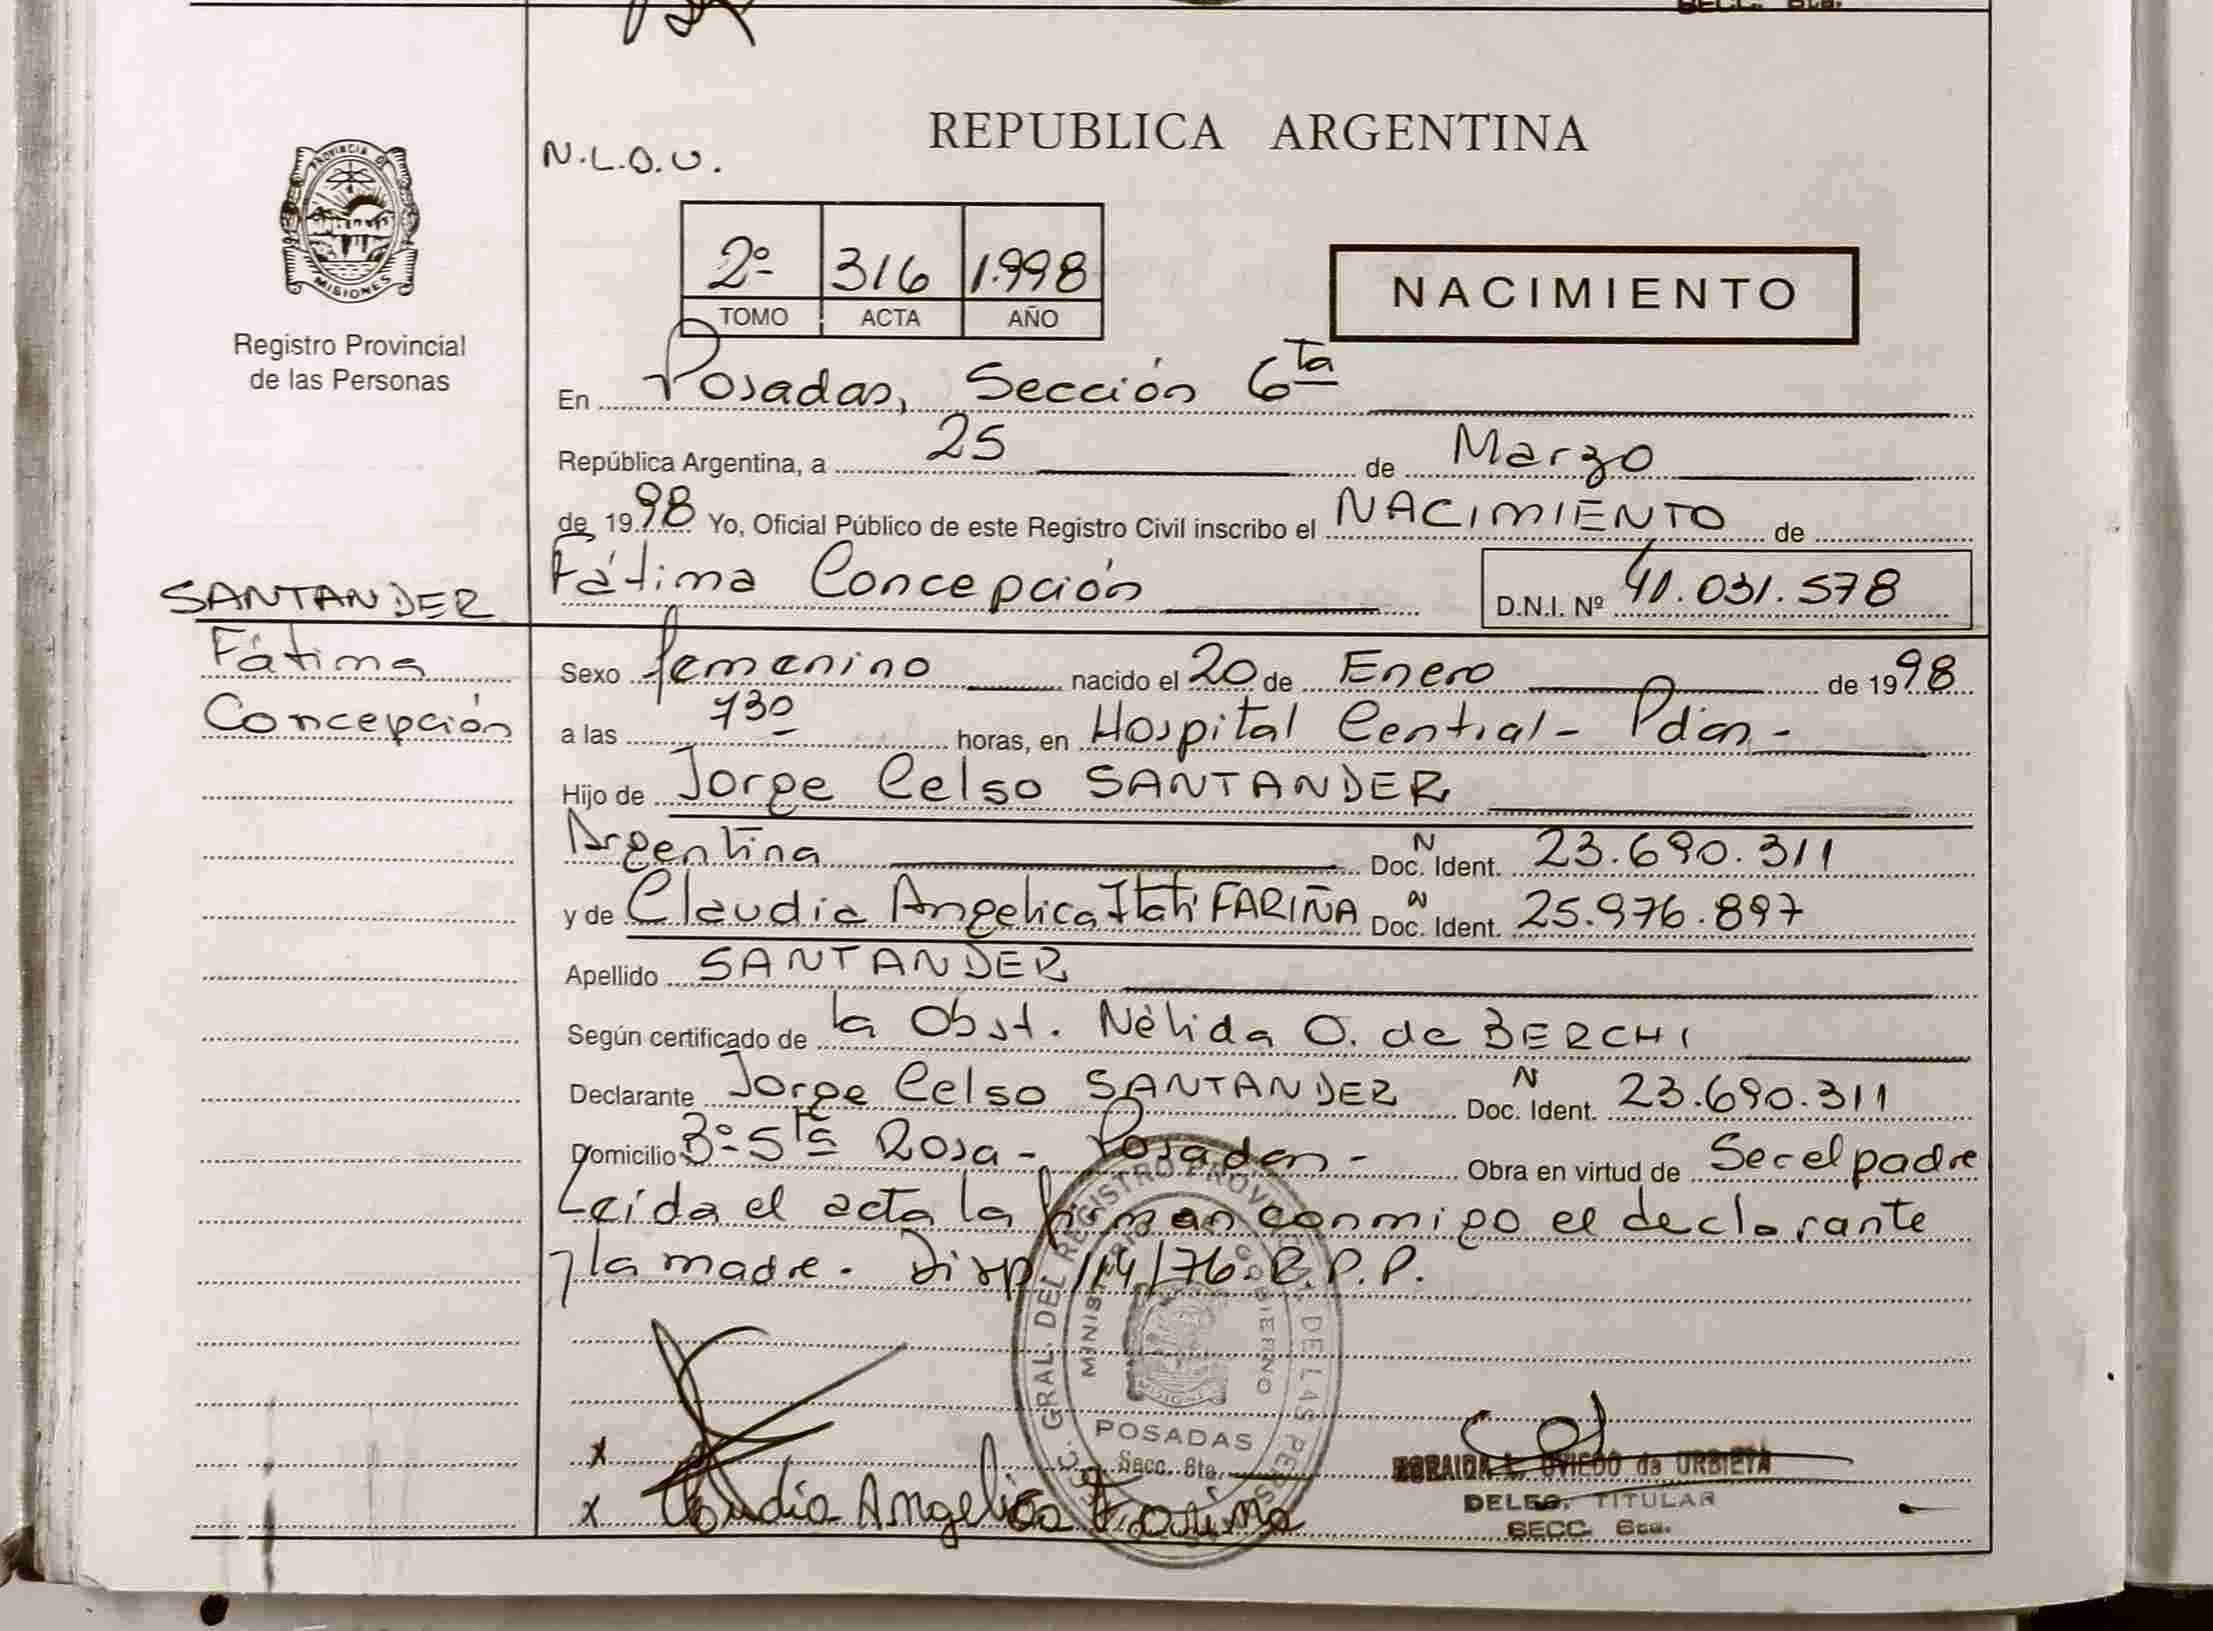 SECC. 6ta.
REPUBLICA ARGENTINA
N.L.O.U.
PROVINCIA DE
MISIONES
Registro Provincial
de las Personas
2º 316 1.998
TOMO ACTA AÑO
NACIMIENTO
En Posadas, Sección 6ta
República Argentina, a 25 de Marzo
de 1998 Yo, Oficial Público de este Registro Civil inscribo el NACIMIENTO de
Fátima Concepción D.N.I. Nº 41.031.578
SANTANDER
Fátima
Concepción
Sexo femenino nacido el 20 de Enero de 1998
a las 730 horas, en Hospital Central - Pdas -
Hijo de Jorge Celso SANTANDER
Argentina N Doc. Ident. 23.690.311
y de Claudia Angelica Itatí FARIÑA N Doc. Ident. 25.976.897
Apellido SANTANDER
Según certificado de la Obst. Nélida O. de BERCHI
Declarante Jorge Celso SANTANDER N Doc. Ident. 23.690.311
Domicilio Bº Sta Rosa - Posadas - Obra en virtud de Ser el padre
Leída el acta la firman conmigo el declarante
y la madre. Disp. 114/76. R.P.P.
GRAL. DEL REGISTRO PROVINCIAL DE LAS PERSONAS
MINISTERIO DE GOBIERNO
POSADAS
Secc. 6ta.
x
x Claudia Angelica Fariña
L. OVIEDO de URBIETA
DELEG. TITULAR
SECC. 6ta.